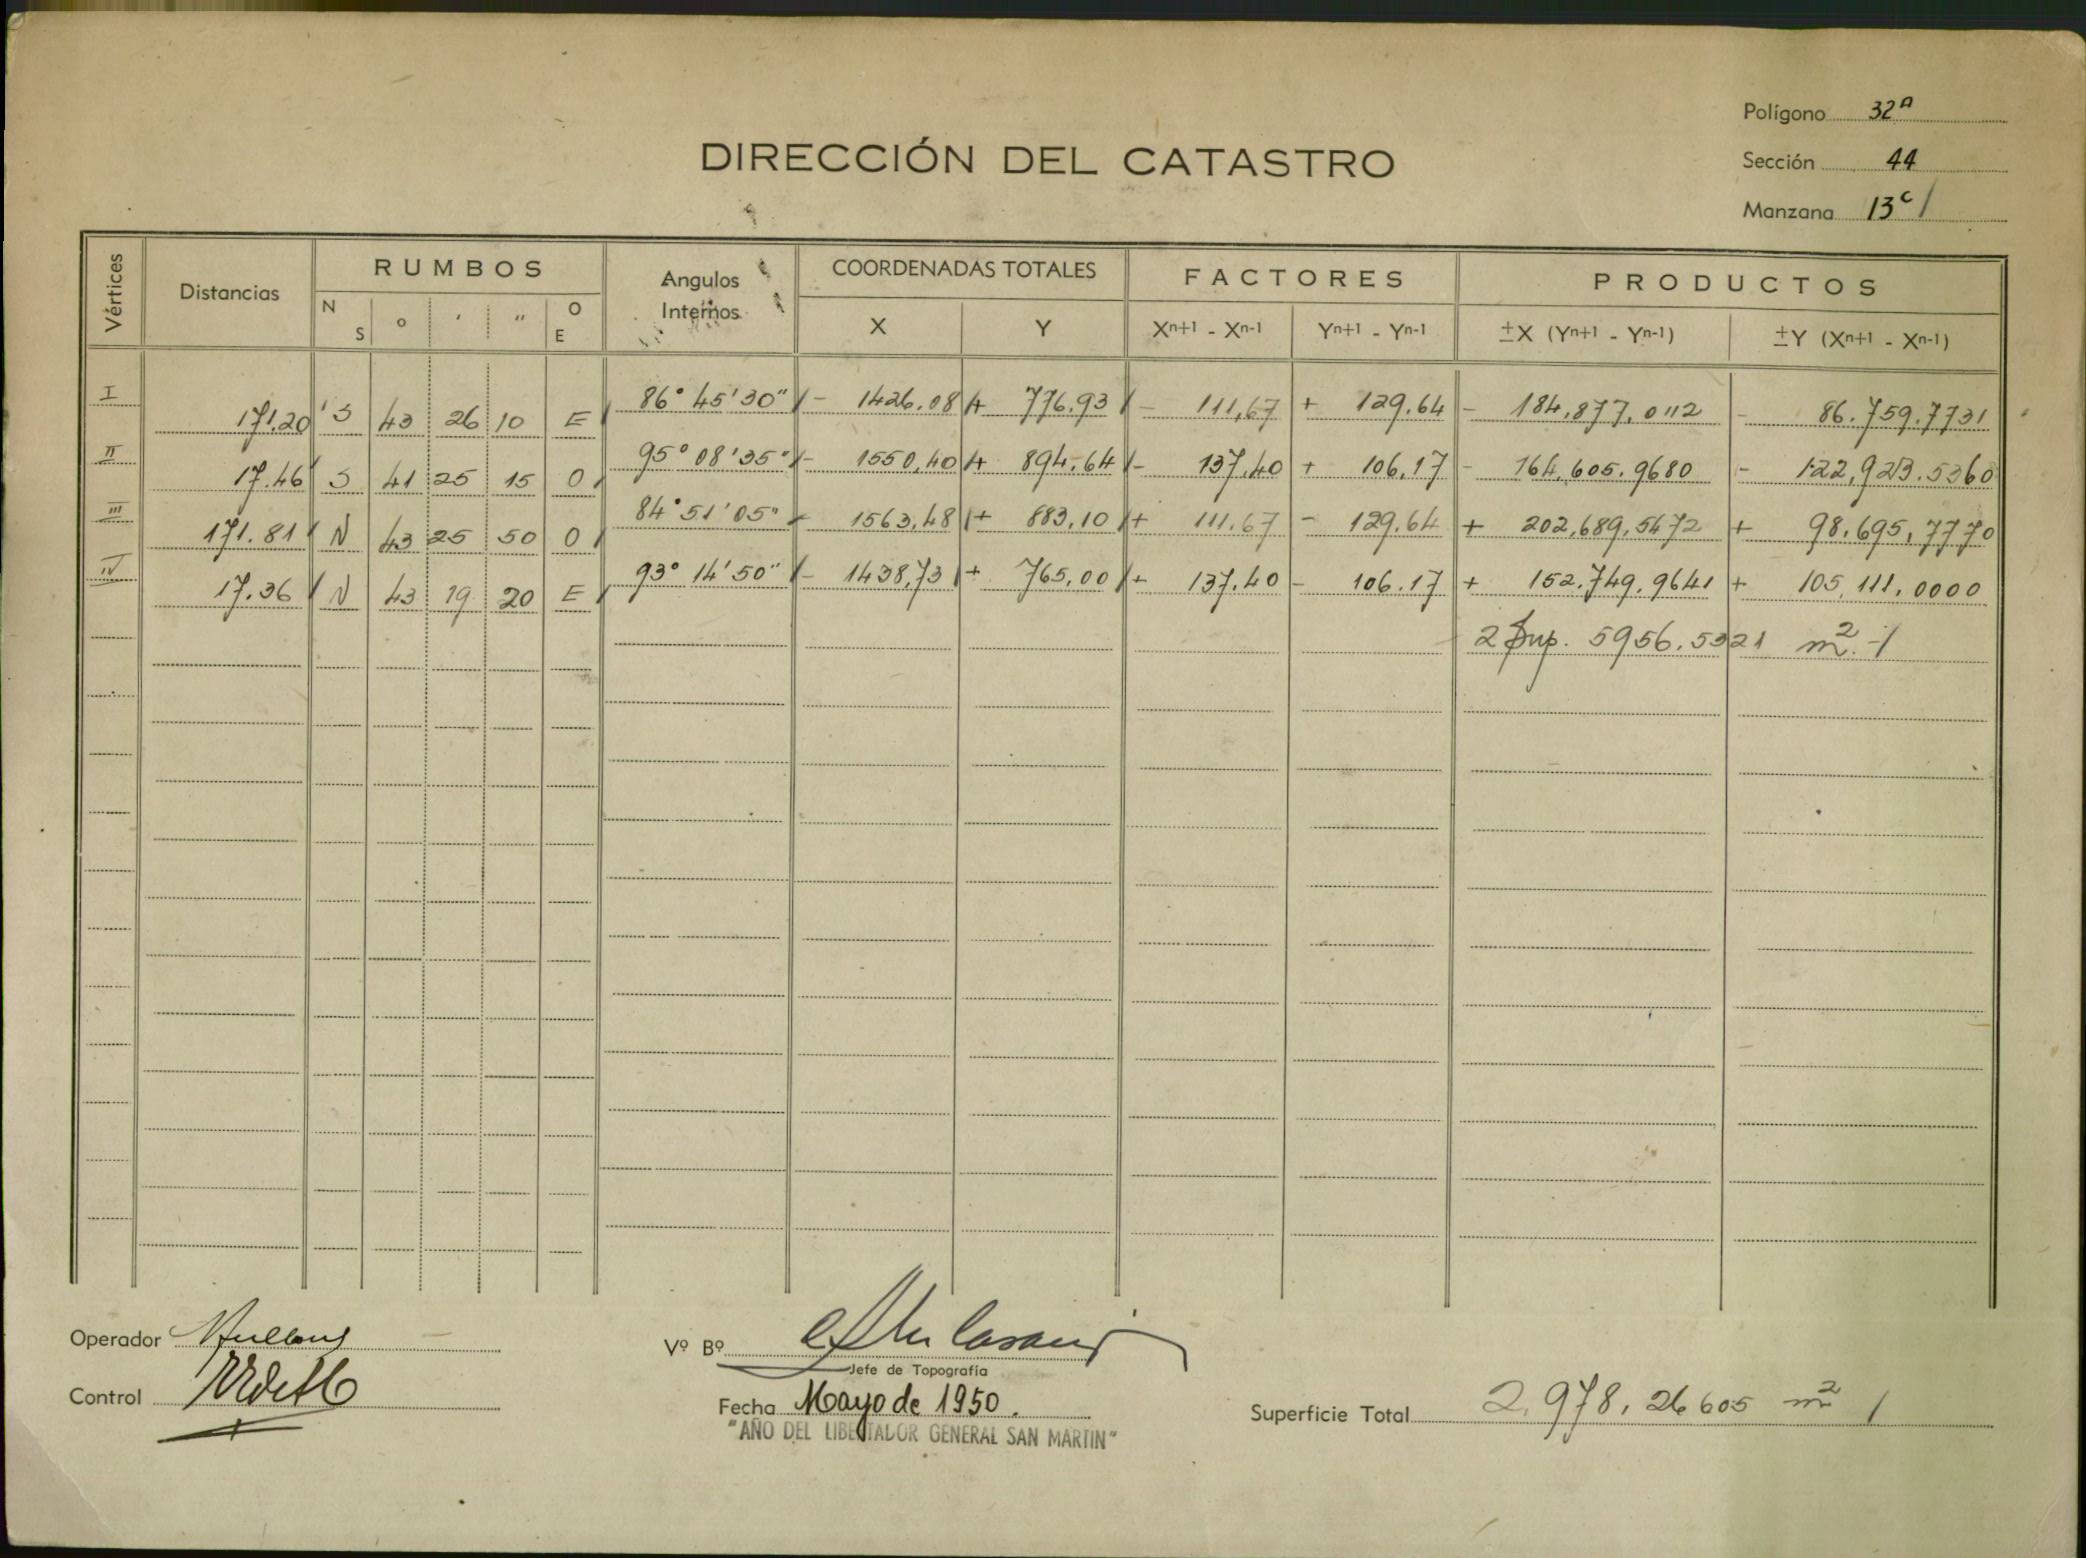 Polígono 32ª
DIRECCIÓN DEL CATASTRO
Sección 44
Manzana 13c /
Vértices Distancias RUMBOS Angulos Internos COORDENADAS TOTALES FACTORES PRODUCTOS
N S ° ' " O E X Y Xn+1 - Xn-1 Yn+1 - Yn-1 ±X (Yn+1 - Yn-1) ±Y (Xn+1 - Xn-1)
I 171.20 S 43 26 10 E 86° 45' 30" - 1426.08 + 776.93 - 111,67 + 129.64 - 184,877,0112 - 86.759.7731
II 17.46 S 41 25 15 O 95° 08' 35" - 1550,40 + 894.64 - 137.40 + 106,17 - 164,605.9680 - 122,923.5360
III 171.81 N 43 25 50 O 84° 51' 05" - 1563,48 + 883,10 + 111.67 - 129,64 + 202,689,5472 + 98.695,7770
IV 17.36 N 43 19 20 E 93° 14' 50" - 1438,73 + 765,00 + 137.40 - 106.17 + 152.749.9641 + 105,111,0000
2 Sup. 5956.5321 m2
Operador
Vº Bº
Jefe de Topografía
Control
Fecha Mayo de 1950.
Superficie Total 2,978,26605 m2 /
"AÑO DEL LIBERTADOR GENERAL SAN MARTIN"